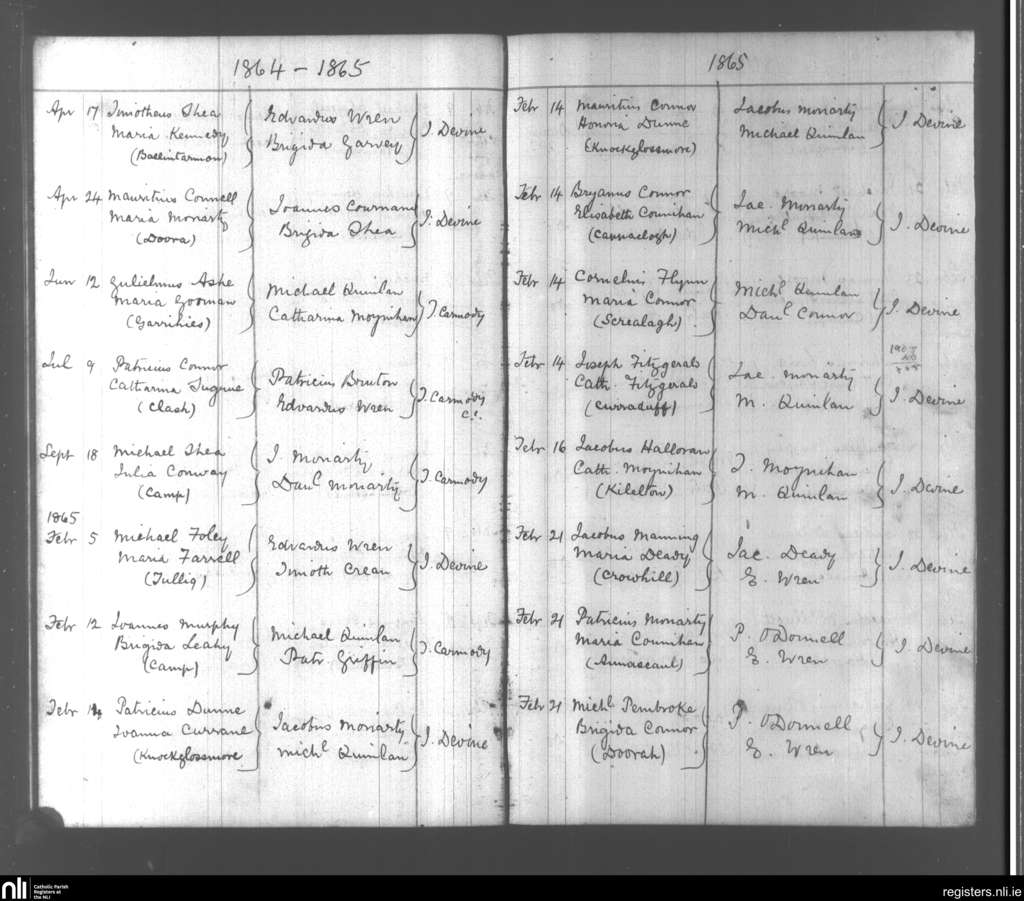 1864 - 1865
Apr 17 Timotheus Shea
Maria Kennedy
(Ballintarmon)
Edvardus Wren
Brigida Garvey
J. Devine
Apr 24 Mauritius Connell
Maria Moriarty
(Doora)
Joannes Cournane
Brigida Shea
J. Devine
Jun 12 Gulielmus Ashe
Maria Gooman
(Garrihies)
Michael Quinlan
Catharina Moynihan
T. Carmody
Jul 9 Patricius Connor
Catharina
(Clash)
Patricius Bruton
Edvardus Wren
T. Carmody
C.C.
Sept 18 Michael Shea
Julia Conway
(Camp)
J. Moriarty
Danl Moriarty
T. Carmody
1865
Febr 5 Michael Foley
Maria Farrell
(Tullig)
Edvardus Wren
Timoth Crean
J. Devine
Febr 12 Joannes Murphy
Brigida Leahy
(Camp)
Michael Quinlan
Patr Griffin
T. Carmody
Febr 14 Patricius Dunne
Joanna Currane
(Knockglossmore
Jacobus Moriarty
Michl Quinlan
J. Devine
1865
Febr 14 Mauritius Connor
Honoria Dunne
(Knockglossmore)
Jacobus Moriarty
Michael Quinlan
J Devine
Febr 14 Bryanus Connor
Elisabeth Counihan
(Cannaclogh)
Jac. Moriarty
Michl Quinlan
J. Devine
Febr 14 Cornelius Flynn
Maria Connor
(Screalagh)
Michl Quinlan
Danl Connor
J. Devine
Febr 14 Joseph Fitzgerald
Cath. Fitzgerald
(Curraduff)
Jac. Moriarty
M. Quinlan
J. Devine
Febr 16 Jacobus Halloran
Cath. Moynihan
(Kilelton)
J. Moynihan
M. Quinlan
J. Devine
Febr 21 Jacobus Manning
Maria Deady
(Crowhill)
Jac. Deady
E. Wren
J. Devine
Febr 21 Patricius Moriarty
Maria Counihan
(Annascaul)
P. O'Donnell
E. Wren
J. Devine
Febr 21 Michl Pembroke
Brigida Connor
(Doorah)
P. O'Donnell
E. Wren
J. Devine
nli Catholic Parish
Registers at
the NLI
registers.nli.ie